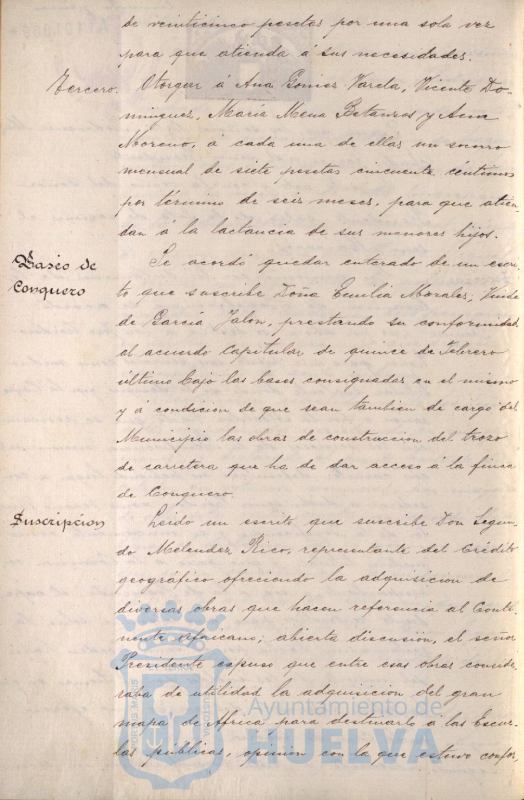 de veinticinco pesetas por una sola vez
para que atienda á sus necesidades.
Tercero. Otorgar á Ana Gomez Varela, Vicenta Do-
minguez, María Mena Betanzos y Ana
Moreno, á cada una de ellas un socorro
mensual de siete pesetas cincuenta céntimos
por término de seis meses, para que atien
dan á la lactancia de sus menores hijos.
Paseo de
Conquero
Se acordó quedar enterado de un escri
to que suscribe Doña Emilia Morales, Viuda
de García Jalon, prestando su conformidad
al acuerdo Capitular de quince de Febrero
último bajo las bases consignadas en el mismo
y á condicion de que sean tambien de cargo del
Municipio las obras de construccion del trozo
de carretera que ha de dar acceso á la finca
de Conquero.
Suscripcion
Leido un escrito que suscribe Don Segun
do Melendez Rico, representante del Crédito
geográfico ofreciendo la adquisicion de
diversas obras que hacen referencia al Conti-
nente africano; abierta discusion, el señor
Presidente espuso que entre esas obras conside
raba de utilidad la adquisicion del gran
mapa de Africa para destinarlo á las Escue
las públicas, opinion con la que estuvo confor,
Ayuntamiento de
HUELVA